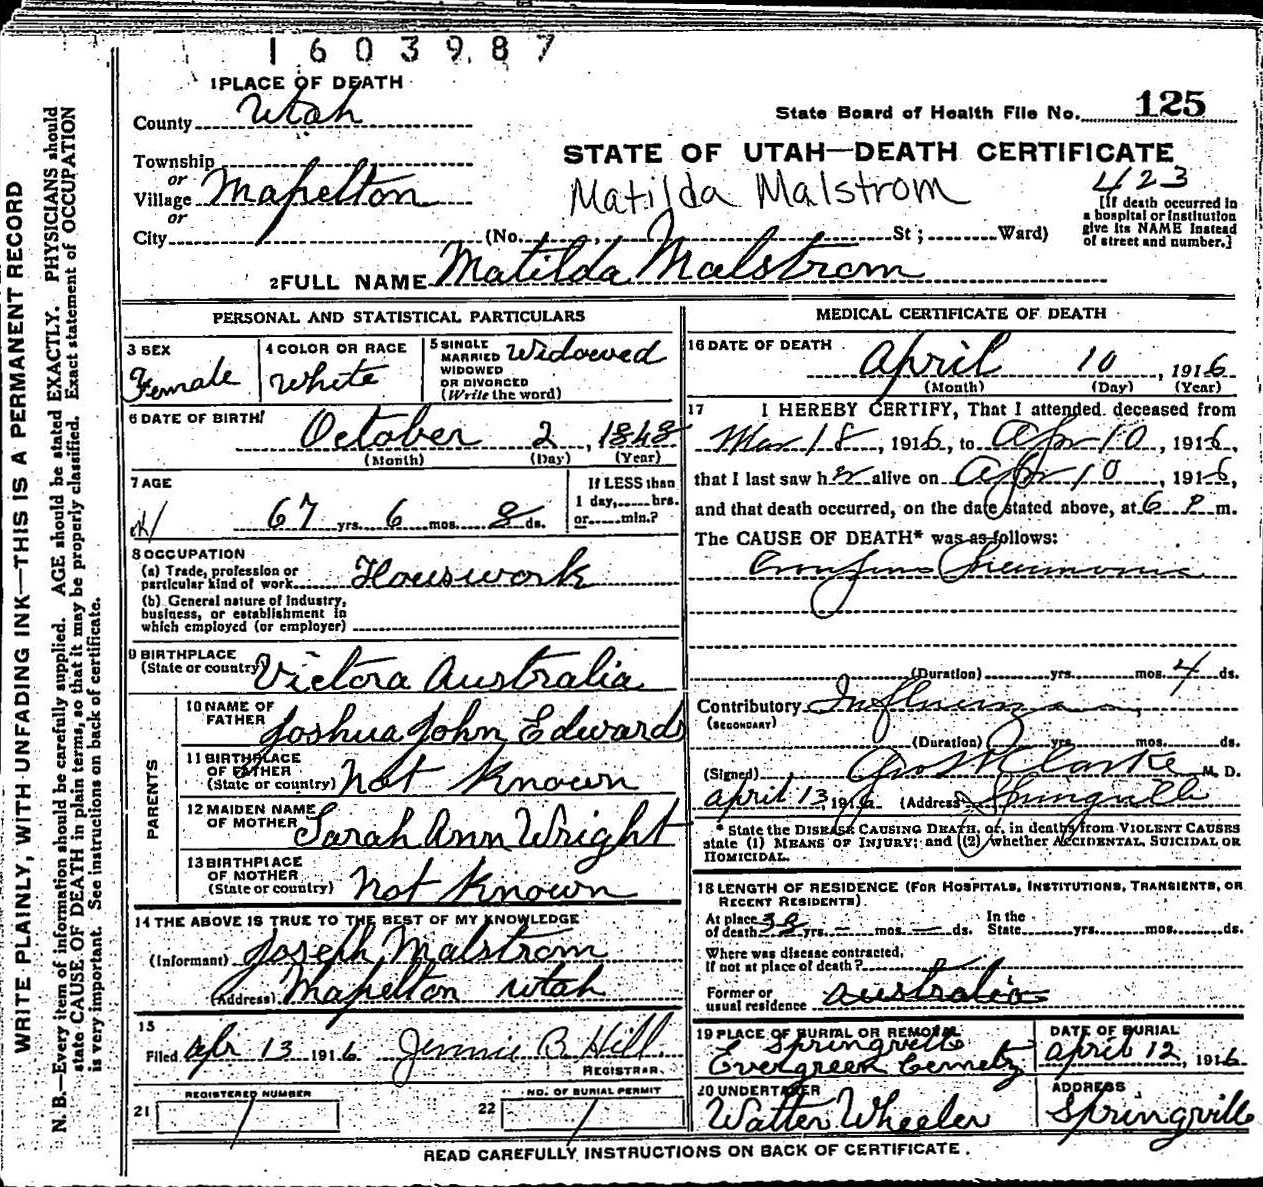 1603987
1 PLACE OF DEATH
County Utah
State Board of Health File No. 125
STATE OF UTAH—DEATH CERTIFICATE
Township
or
Village Mapelton
or
City
Matilda Malstrom
423
[If death occurred in
a hospital or institution
give its NAME instead
of street and number.]
(No. St; Ward)
2 FULL NAME Matilda Malstrom
PERSONAL AND STATISTICAL PARTICULARS
3 SEX
Female
4 COLOR OR RACE
White
5 SINGLE
MARRIED
WIDOWED
OR DIVORCED
(Write the word)
Widowed
6 DATE OF BIRTH
October 2, 1848
(Month) (Day) (Year)
7 AGE
67 yrs. 6 mos. 8 ds.
If LESS than
1 day, hrs.
or min.?
8 OCCUPATION
(a) Trade, profession or
particular kind of work Houswork
(b) General nature of industry,
business, or establishment in
which employed (or employer)
9 BIRTHPLACE
(State or country) Victora Australia
PARENTS
10 NAME OF
FATHER Joshua John Edwards
11 BIRTHPLACE
OF FATHER
(State or country) Not Known
12 MAIDEN NAME
OF MOTHER Sarah Ann Wright
13 BIRTHPLACE
OF MOTHER
(State or country) Not Known
14 THE ABOVE IS TRUE TO THE BEST OF MY KNOWLEDGE
(Informant) Joseph Malstrom
(Address) Mapelton Utah
15
Filed Apr 13 1916 Jennie B Hill
REGISTRAR.
REGISTERED NUMBER
21 1
NO. OF BURIAL PERMIT
22 1
MEDICAL CERTIFICATE OF DEATH
16 DATE OF DEATH
April 10, 1916
(Month) (Day) (Year)
17 I HEREBY CERTIFY, That I attended deceased from
Mar 18, 1916, to Apr 10, 1916,
that I last saw her alive on Apr 10, 1916,
and that death occurred, on the date stated above, at 6 P m.
The CAUSE OF DEATH* was as follows:
Croupous Pneumonia
(Duration) yrs. mos. 4 ds.
Contributory Influenza
(SECONDARY)
(Duration) yrs. mos. ds.
(Signed) Geo Clarke M. D.
April 13 1916 (Address) Springville
* State the DISEASE CAUSING DEATH, or, in deaths from VIOLENT CAUSES
state (1) MEANS OF INJURY; and (2) whether ACCIDENTAL, SUICIDAL OR
HOMICIDAL.
18 LENGTH OF RESIDENCE (FOR HOSPITALS, INSTITUTIONS, TRANSIENTS, OR
RECENT RESIDENTS)
At place
of death 38 yrs. – mos. – ds.
In the
State yrs. mos. ds.
Where was disease contracted,
If not at place of death?
Former or
usual residence Australia
19 PLACE OF BURIAL OR REMOVAL
Springville
Evergreen Cemetry
DATE OF BURIAL
April 12, 1916
20 UNDERTAKER
Walter Wheeler
ADDRESS
Springville
READ CAREFULLY INSTRUCTIONS ON BACK OF CERTIFICATE.
WRITE PLAINLY, WITH UNFADING INK—THIS IS A PERMANENT RECORD
N. B.—Every item of information should be carefully supplied. AGE should be stated EXACTLY. PHYSICIANS should
state CAUSE OF DEATH in plain terms, so that it may be properly classified. Exact statement of OCCUPATION
is very important. See instructions on back of certificate.